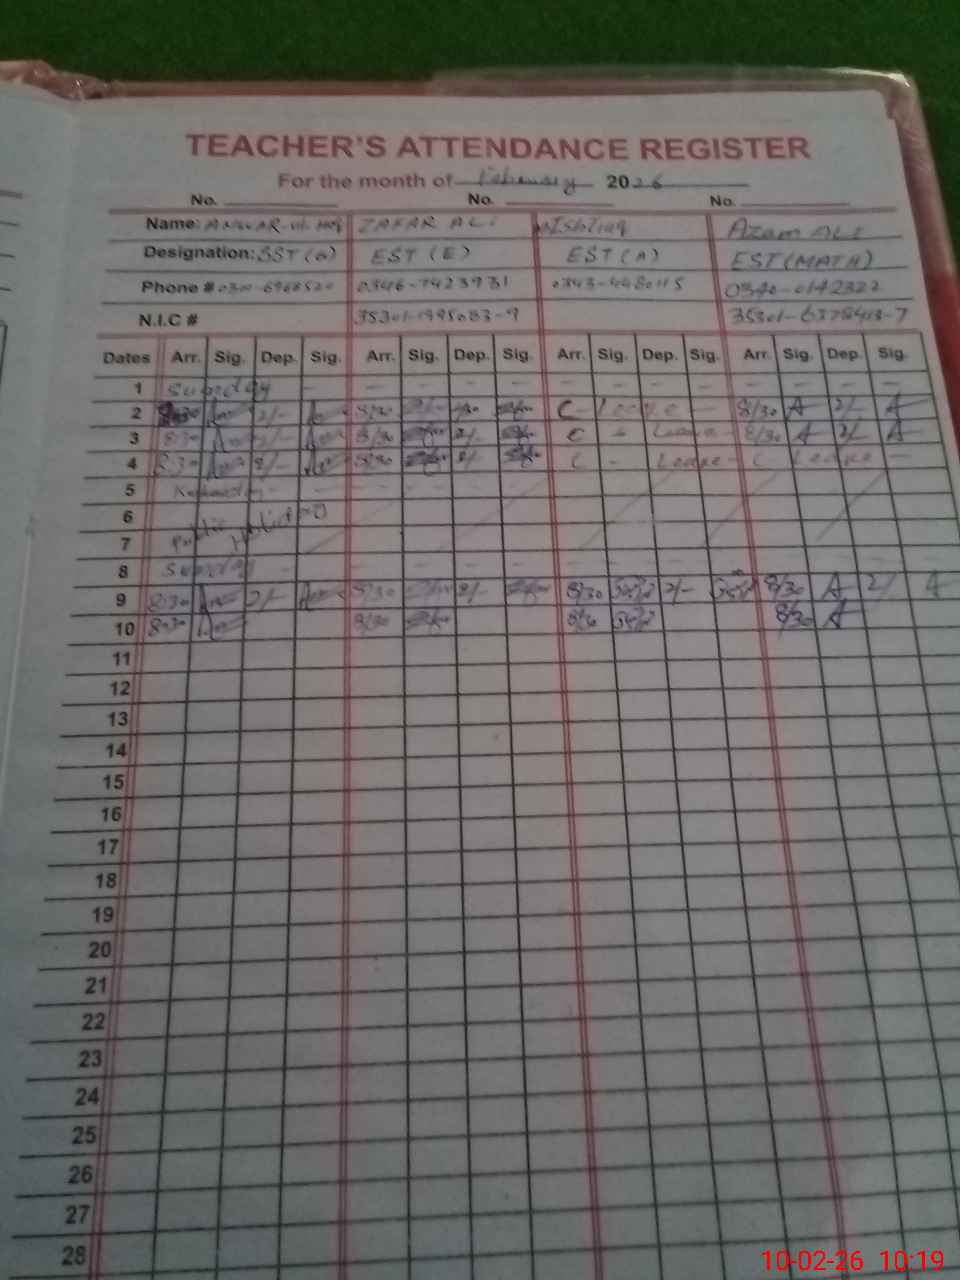 TEACHER'S ATTENDANCE REGISTER
For the month of February 2026
No. No. No.
Name: ANWAR-ul-Haq ZAFAR ALI Ishtiaq Azam ALI
Designation: SST (G) EST (E) EST (A) EST (MATH)
Phone # 0346-7423931 0343-4480115 0340-0142322
N.I.C # 35301-1995083-9
Dates Arr. Sig. Dep. Sig. Arr. Sig. Dep. Sig. Arr. Sig. Dep. Sig. Arr. Sig. Dep. Sig.
1 Sunday - - - - - - - - - -
2 8/30 2/- 8/30 C - Leave - 8/30 A 2/- A
3 8/30 2/- 8/30 2/- C - Leave - 8/30 A 2/- A
4 8/30 2/- 8/30 2/- C - Leave C Leave -
5 Kashmir Day - - - -
6 Public Holiday
7
8 Sunday - - - -
9 8/30 2/- 8/30 2/- 8/30 2/- 8/30 A 2/ A
10 8/30 8/30 8/30 8/30 A
11
12
13
14
15
16
17
18
19
20
21
22
23
24
25
26
27
28
10-02-26 10:19